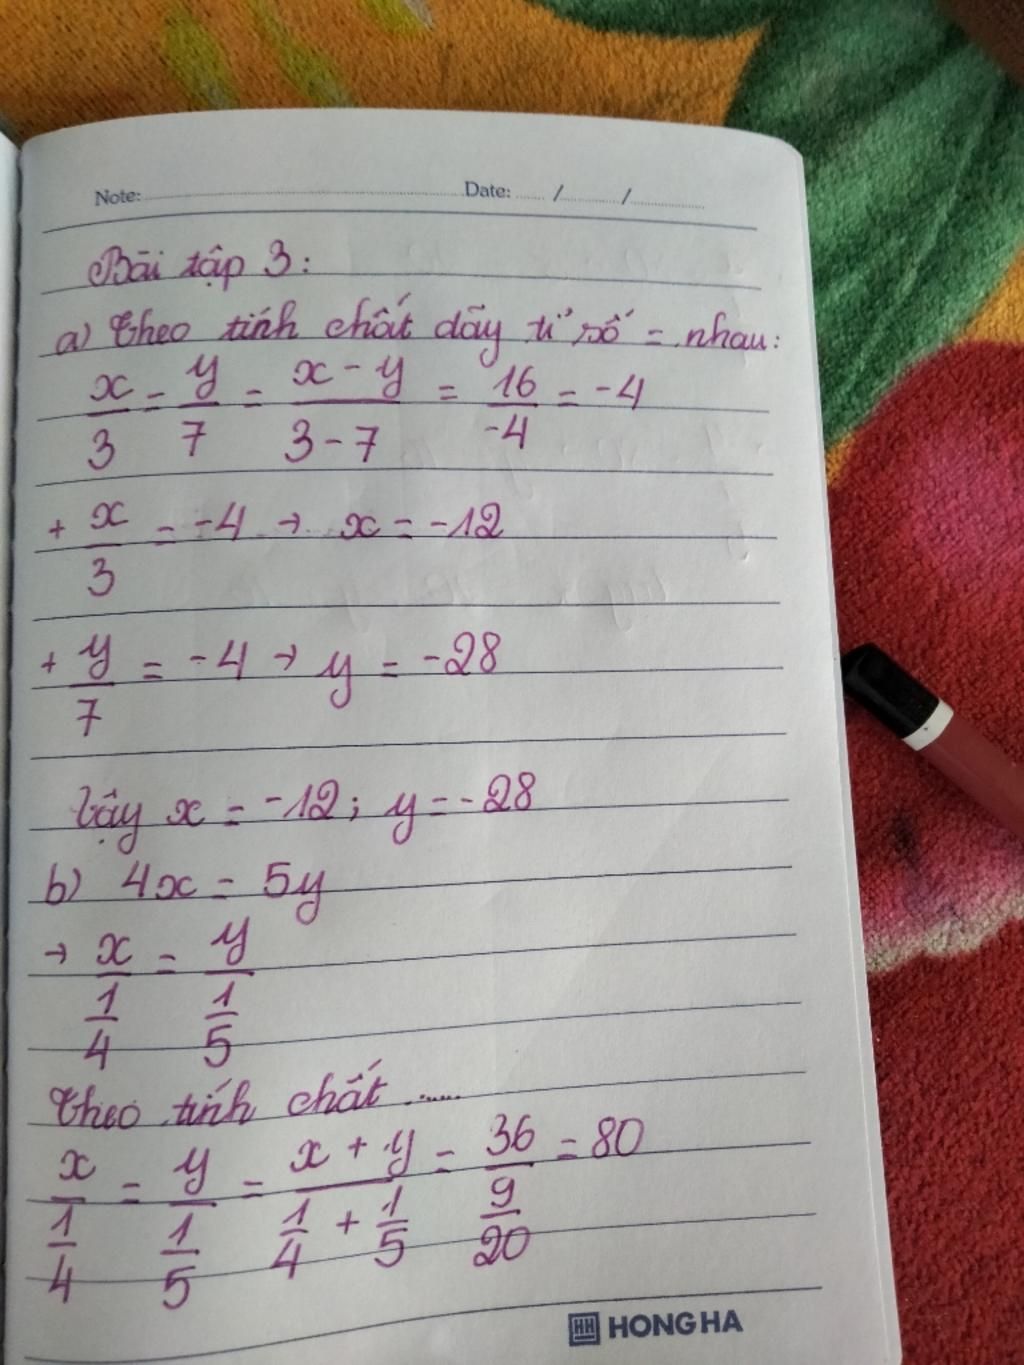 Note: Date: / /
Bài tập 3:
a) Theo tính chất dãy tỉ số = nhau:
x/3 = y/7 = (x - y)/(3 - 7) = 16/-4 = -4
+ x/3 = -4 → x = -12
+ y/7 = -4 → y = -28
Vậy x = -12; y = -28
b) 4x = 5y
→ x/(1/4) = y/(1/5)
Theo tính chất ......
x/(1/4) = y/(1/5) = (x + y)/(1/4 + 1/5) = 36/(9/20) = 80
HH HONG HA